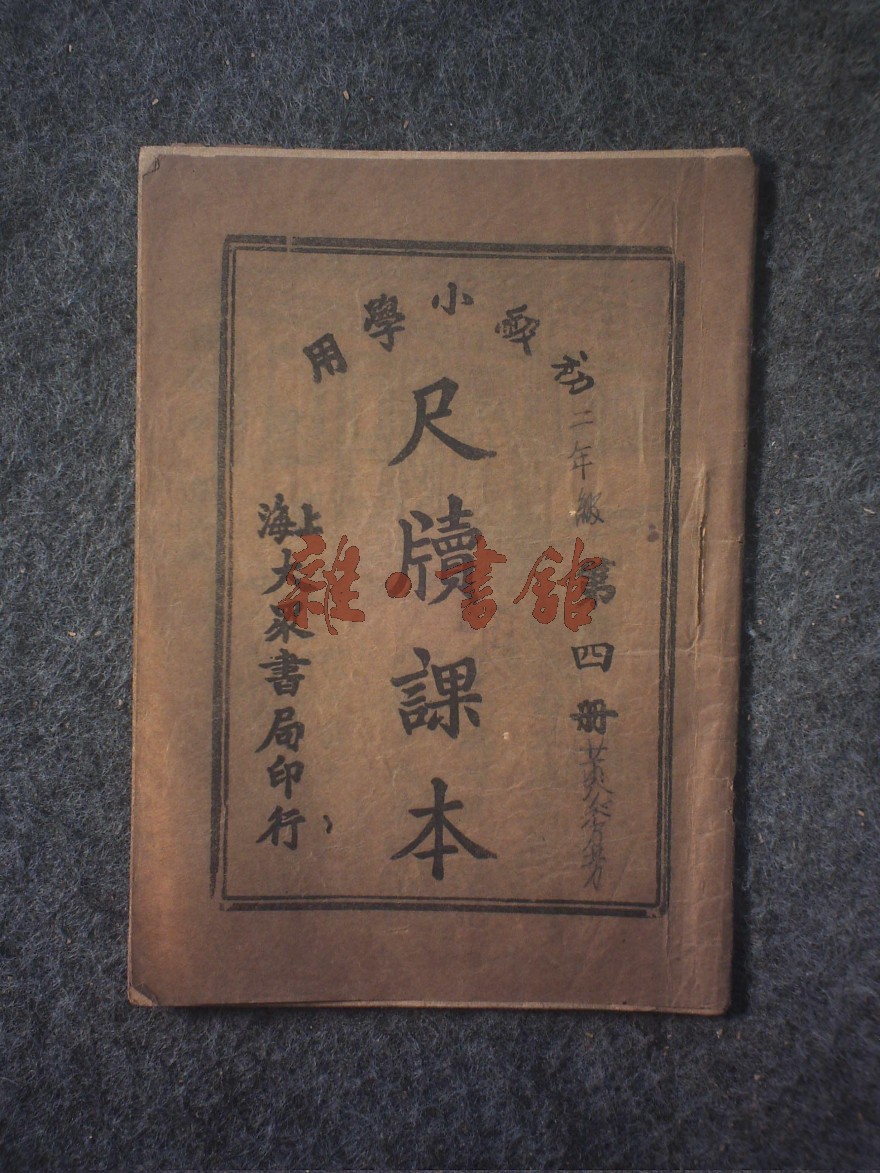 小學用
二年級
第四册
尺牘課本
上海大眾書局印行
雜·書館